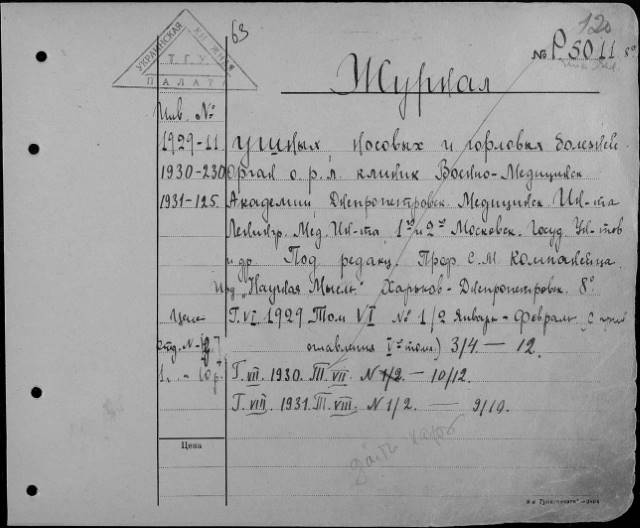 120
63
УКРАИНСКАЯ КНИЖНАЯ ПАЛАТА
Т.Г.У.
№ Р5011 8°
Журнал
Инв. №
1929-11 ушных носовых и горловых болезней
1930-230 Орган о.р.л. клиник Военно-Медицинск
1931-125 Академии Днепропетровск Медицинск Ин-та
Ленингр. Мед. Ин-та 1го и 2го Московск. Госуд. Ун-тов
и др. Под редакц. Проф. С.М. Компанейца
Изд. "Научная Мысль" Харьков-Днепропетровск. 8°
Цена Г. VI. 1929. Том VI № 1/2 Январь-Февраль (с
отд. N- оглавления I-го тома.) 3/4. — 12.
Г. VII. 1930. Т. VII. N 1/2 — 10/12.
Г. VIII. 1931. Т. VIII. N 1/2. — 9/10.
Цена